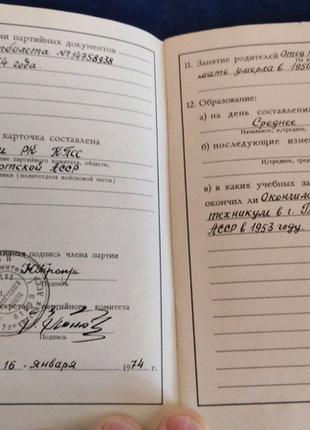 чи партийных документов
билета № 14758938
4 года.
карточка составлена
РК КПСС
ние партийного комитета, области,
отской АССР
блики (политотдела войсковой части)
ная подпись члена партии
Подпись
екретарь партийного комитета
Подпись
16 " января 1974 г.
11. Занятие родителей Отец
мать умерла в 1950
12. Образование:
а) на день составлени
Среднее
Начальное, н/среднее,
б) последующие изме
Н/среднее,
в) в каких учебных за
окончил ли Окончил
техникум в г.
АССР в 1953 году.